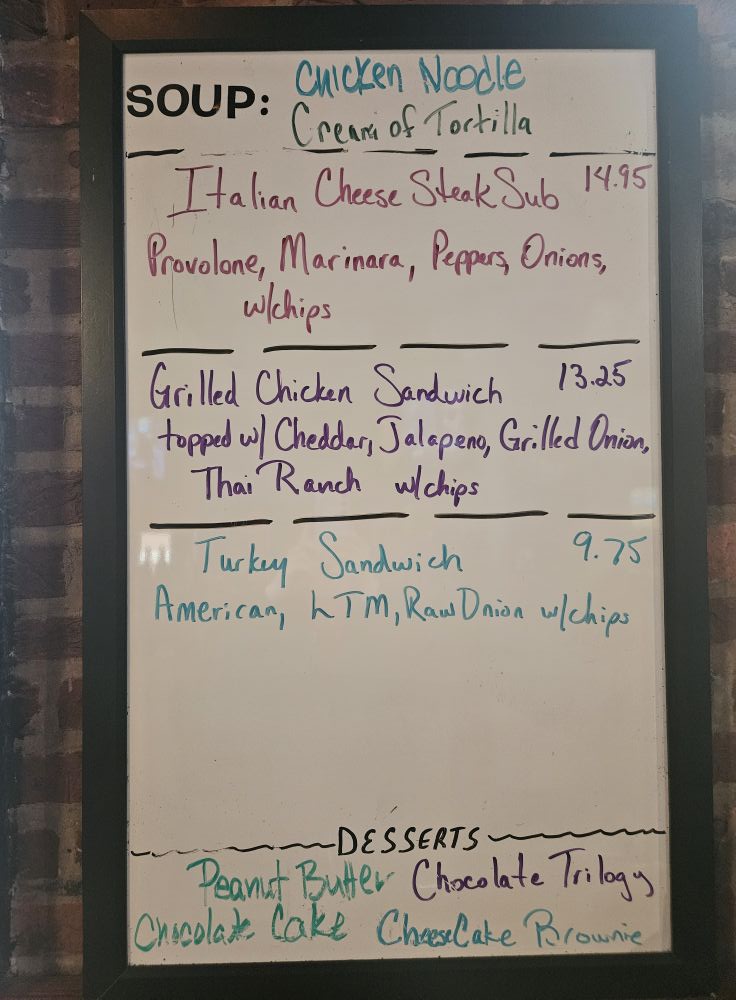 SOUP: Chicken Noodle
Cream of Tortilla
Italian Cheese Steak Sub 14.95
Provolone, Marinara, Peppers, Onions,
w/chips
Grilled Chicken Sandwich 13.25
topped w/ Cheddar, Jalapeno, Grilled Onion,
Thai Ranch w/chips
Turkey Sandwich 9.75
American, LTM, Raw Onion w/chips
DESSERTS
Peanut Butter Chocolate Trilogy
Chocolate Cake CheeseCake Brownie